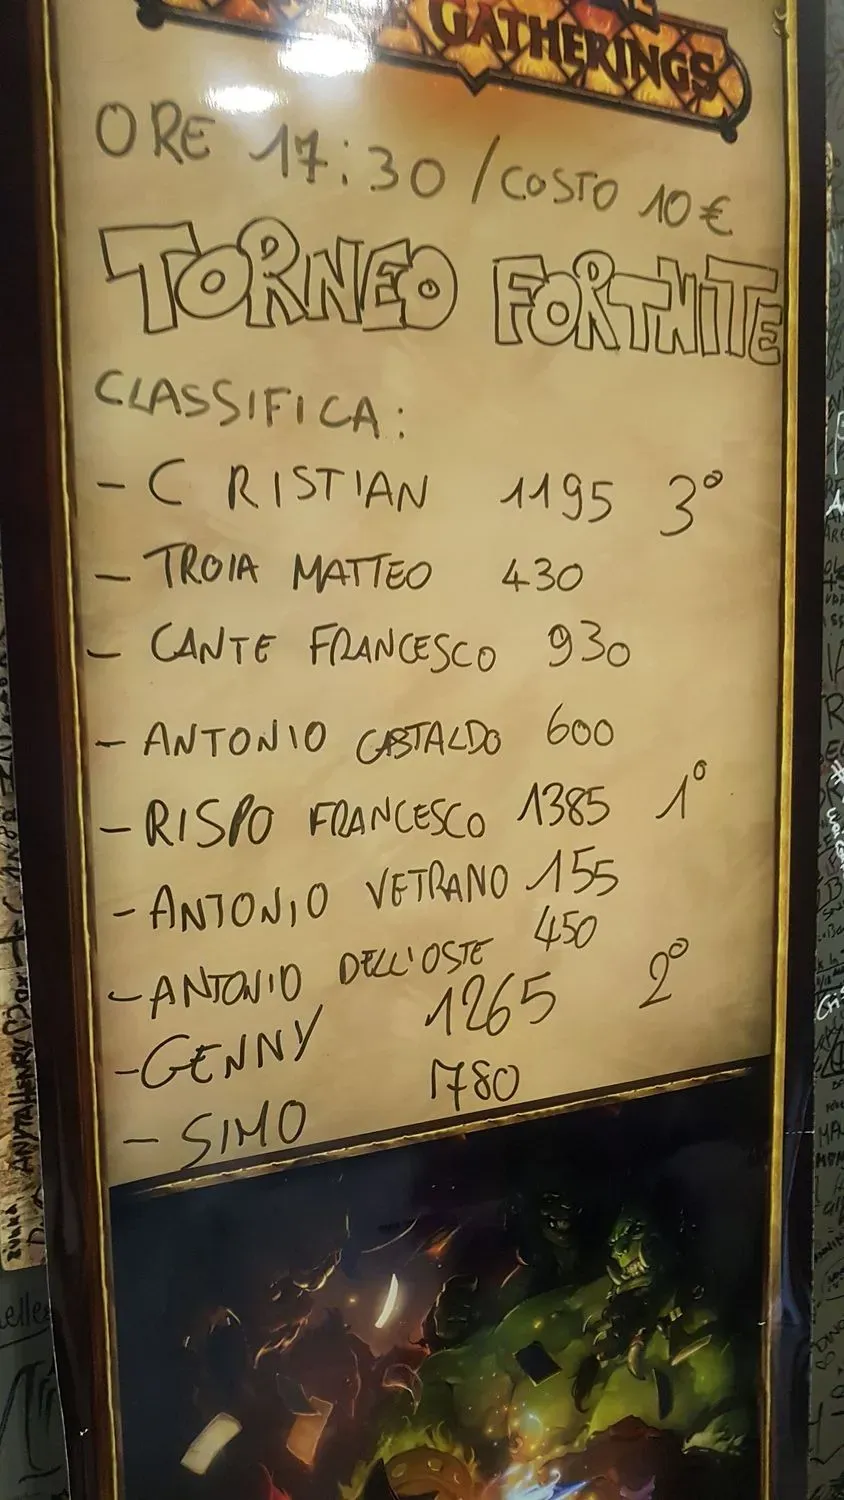 GATHERINGS
ORE 17:30 / COSTO 10€
TORNEO FORTNITE
CLASSIFICA:
- CRISTIAN 1195 3°
- TROIA MATTEO 430
- CANTE FRANCESCO 930
- ANTONIO CASTALDO 600
- RISPO FRANCESCO 1385 1°
- ANTONIO VETRANO 155
- ANTONIO DELL'OSTE 450
- GENNY 1265 2°
- SIMO 780